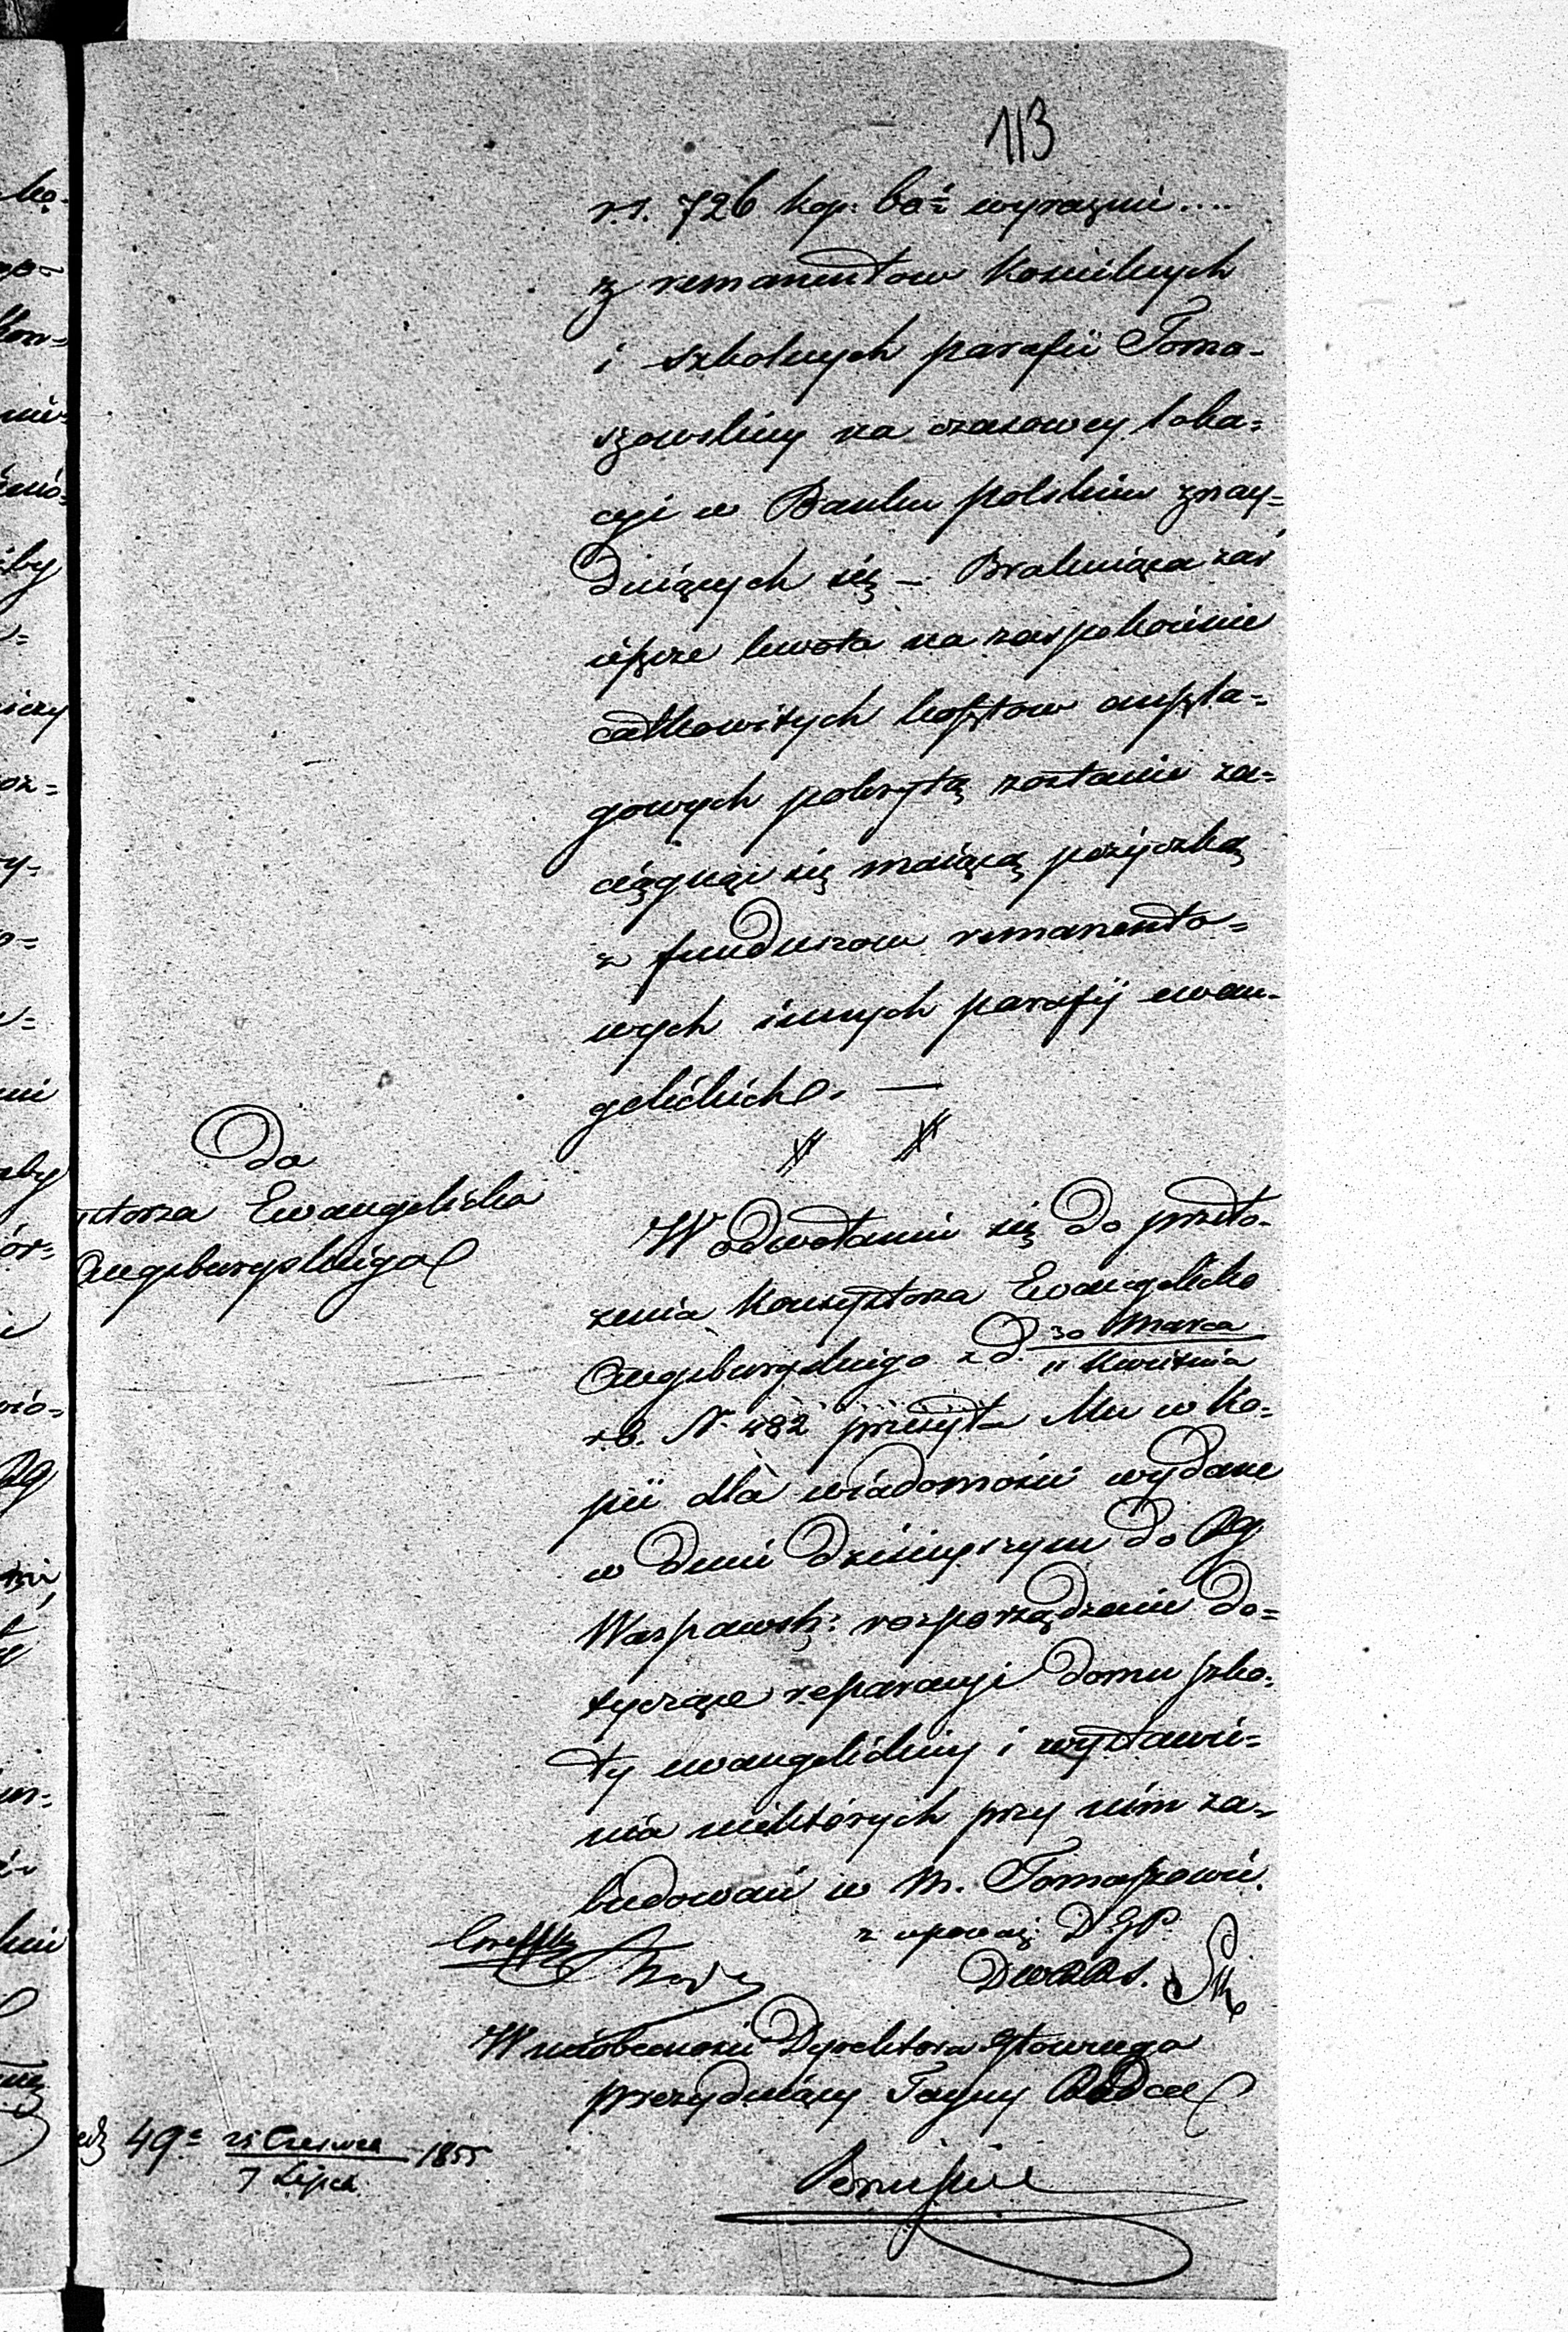 113
r.s. 726 kop. 60½ wyraznie....
z remanentow Koscielnych
i szkolnych parafii Toma-
szowskiey na czasowey loka=
cyi w Banku polskim znay=
duiących się – Brakuiąca zaś
ieszcze kwota na zaspokoienie
całkowitych kosztow anszla=
gowych pokrytą zostanie za=
ciągnąć się maiącą pożyczką
z funduszow remanento=
wych innych parafij ewan-
gelickich. —
Do
ystorza Ewangelicko
Augsburgskiego
W odwołaniu się do przeło-
żenia Konsystorza Ewangelicko
Augsburgskiego z d. 30 Marca
11 Kwietnia
r.b. N. 482 przesyła Mu w Ko=
pii dla wiadomości wydane
w dniu dzisieyszym do Rg
Warszawsk: rozporządzenie do=
tyczące reparacyi domu szko=
ły ewangelickiey i wystawie=
nia niektórych przy nim za=
budowań w m. Tomaszowie.
z upoważ: D.G.P.
W nieobecności Dyrektora Głownego
prezyduiący Tayny Radca
49. 25 Czerwca 1855
7 Lipca